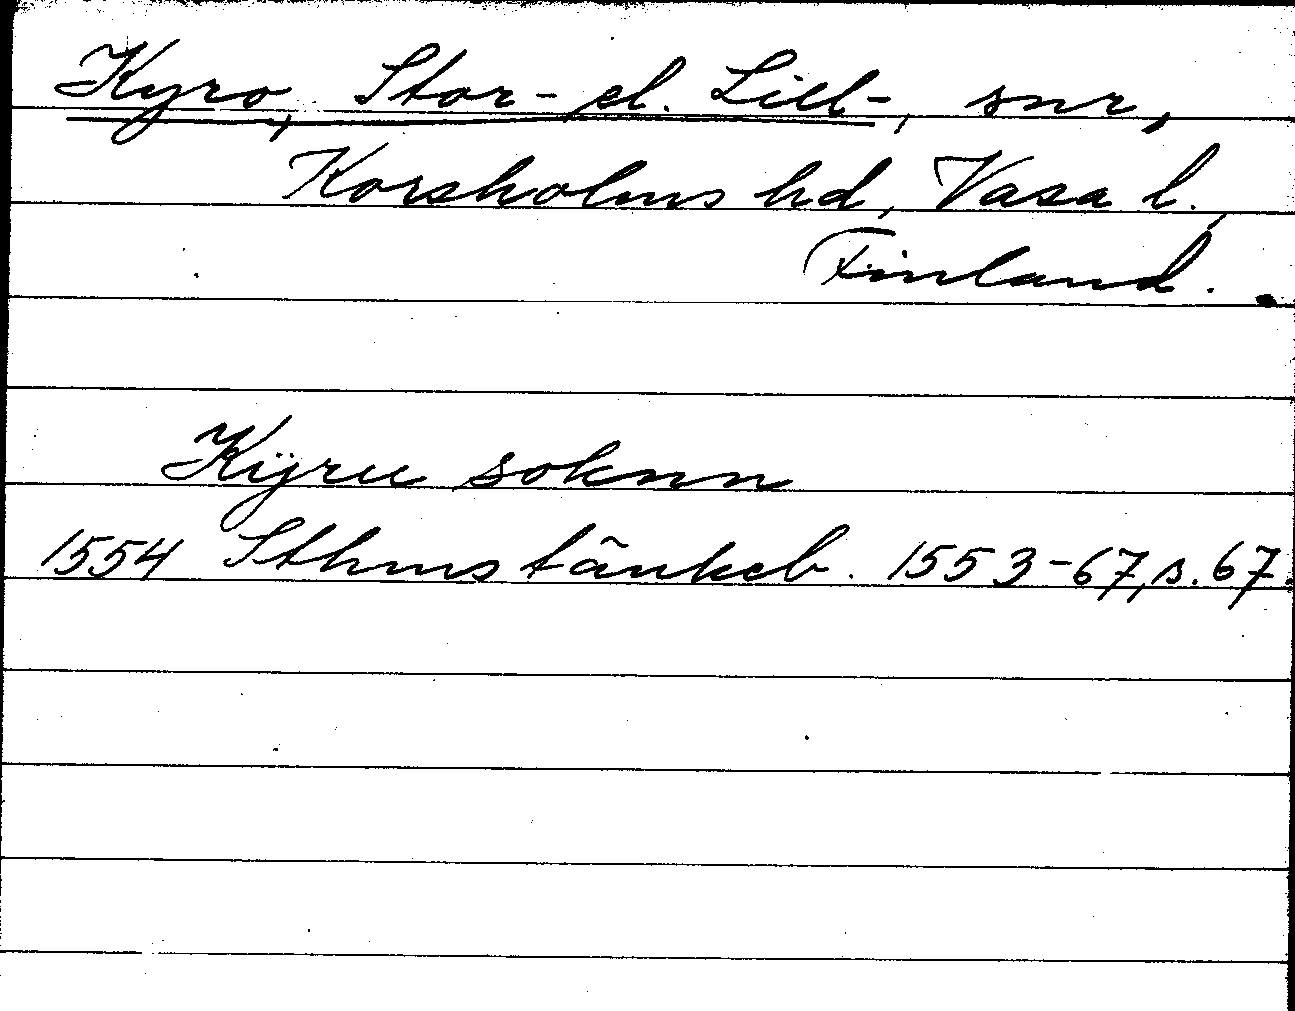 Kyro, Stor- el. Lill-, snr,
Korsholms hd, Vasa l.,
Finland.
Kÿru soknn
1554 Sthms tänkeb. 1553-67, s. 67.